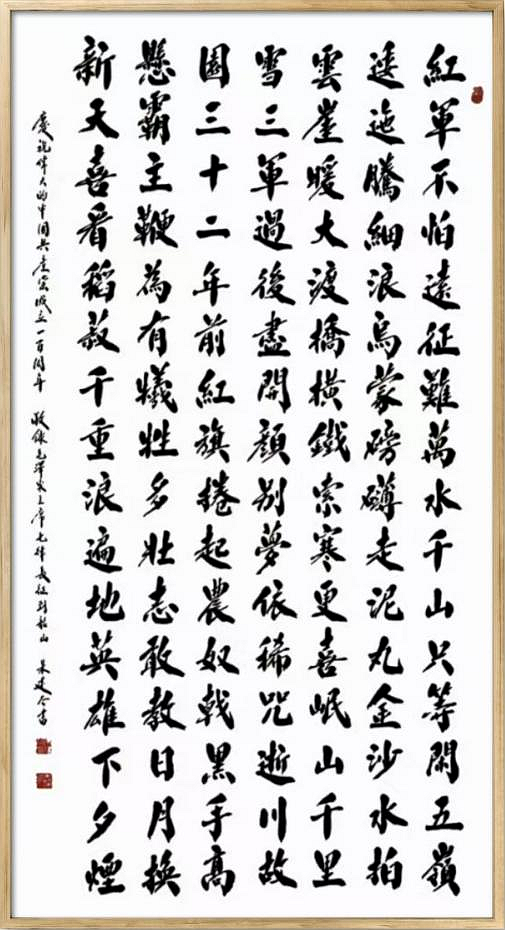 紅軍不怕遠征難萬水千山只等閑五嶺
逶迤騰細浪烏蒙磅礴走泥丸金沙水拍
雲崖暖大渡橋橫鐵索寒更喜岷山千里
雪三軍過後盡開顏別夢依稀咒逝川故
園三十二年前紅旗捲起農奴戟黑手高
懸霸主鞭為有犧牲多壯志敢教日月換
新天喜看稻菽千重浪遍地英雄下夕煙
慶祝偉大的中国共產党成立一百周年 敬錄毛澤東主席七律長征到韶山 書